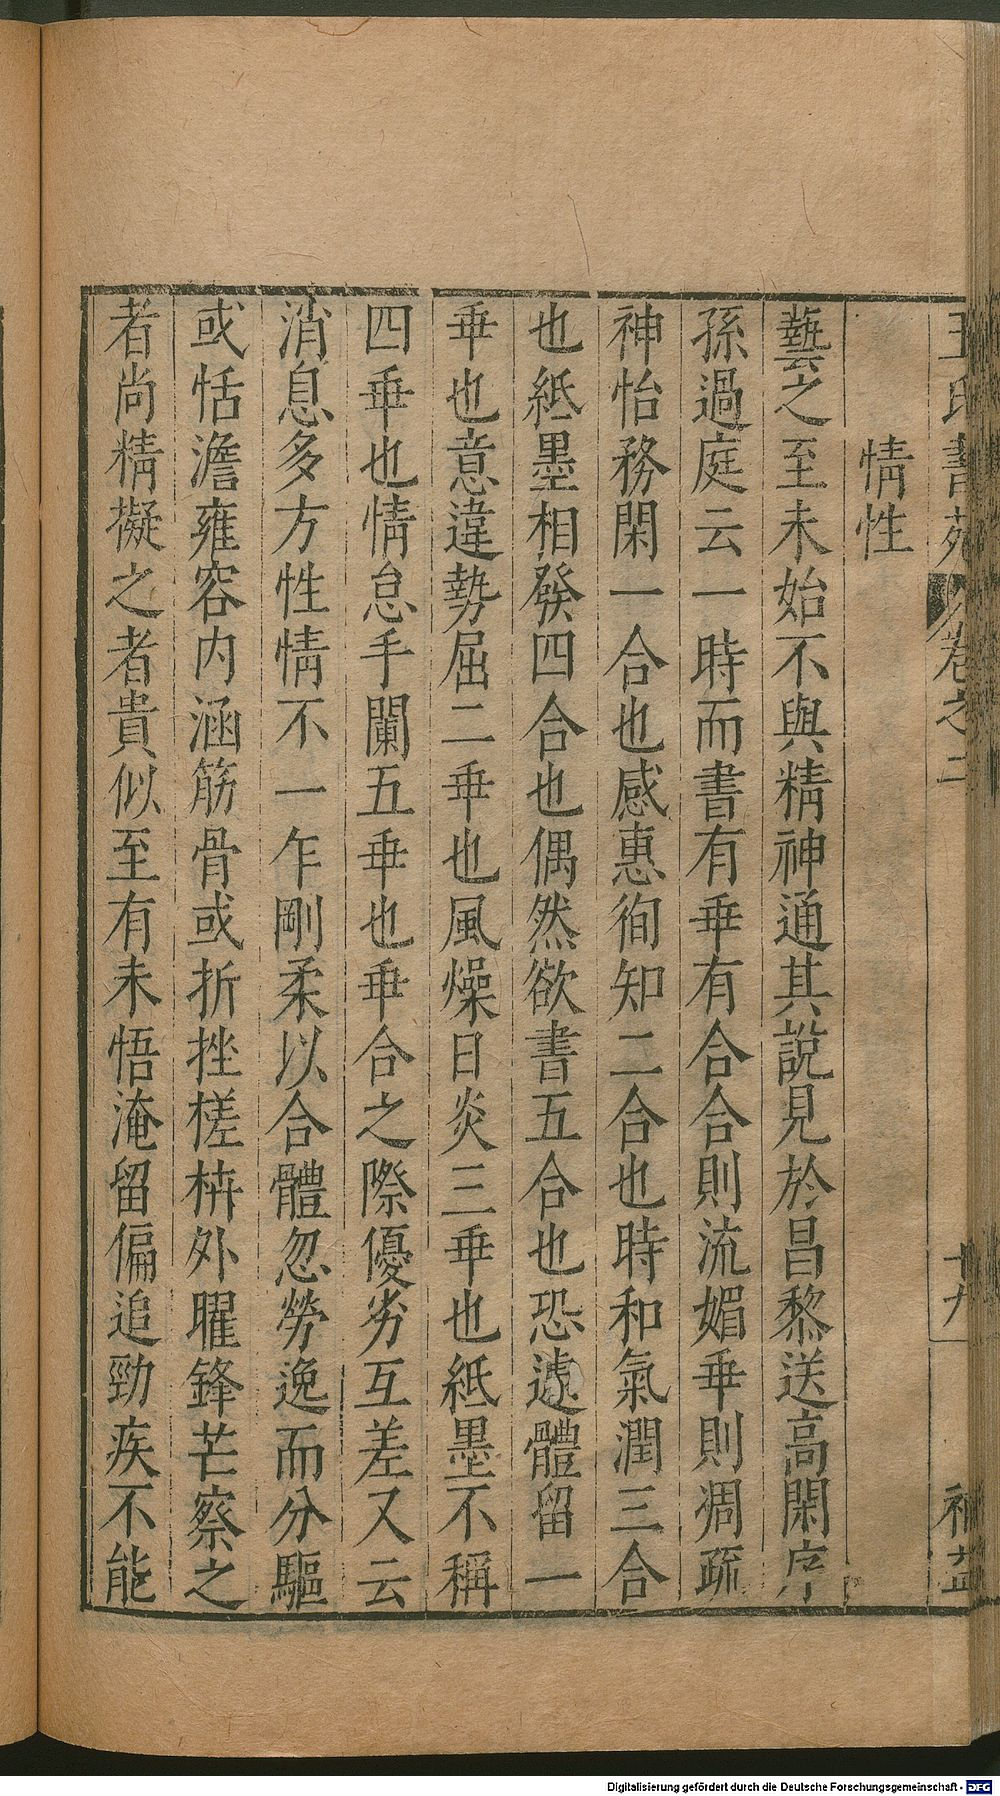 王氏書苑 卷之二 十九 補益
情性
藝之至未始不與精神通其說見於昌黎送高閑序
孫過庭云一時而書有乖有合合則流媚乖則凋疏
神怡務閑一合也感惠徇知二合也時和氣潤三合
也紙墨相發四合也偶然欲書五合也恐遽體留一
乖也意違勢屈二乖也風燥日炎三乖也紙墨不稱
四乖也情怠手闌五乖也乖合之際優劣互差又云
消息多方性情不一乍剛柔以合體忽勞逸而分驅
或恬澹雍容內涵筋骨或折挫槎枿外曜鋒芒察之
者尚精擬之者貴似至有未悟淹留偏追勁疾不能
Digitalisierung gefördert durch die Deutsche Forschungsgemeinschaft - DFG